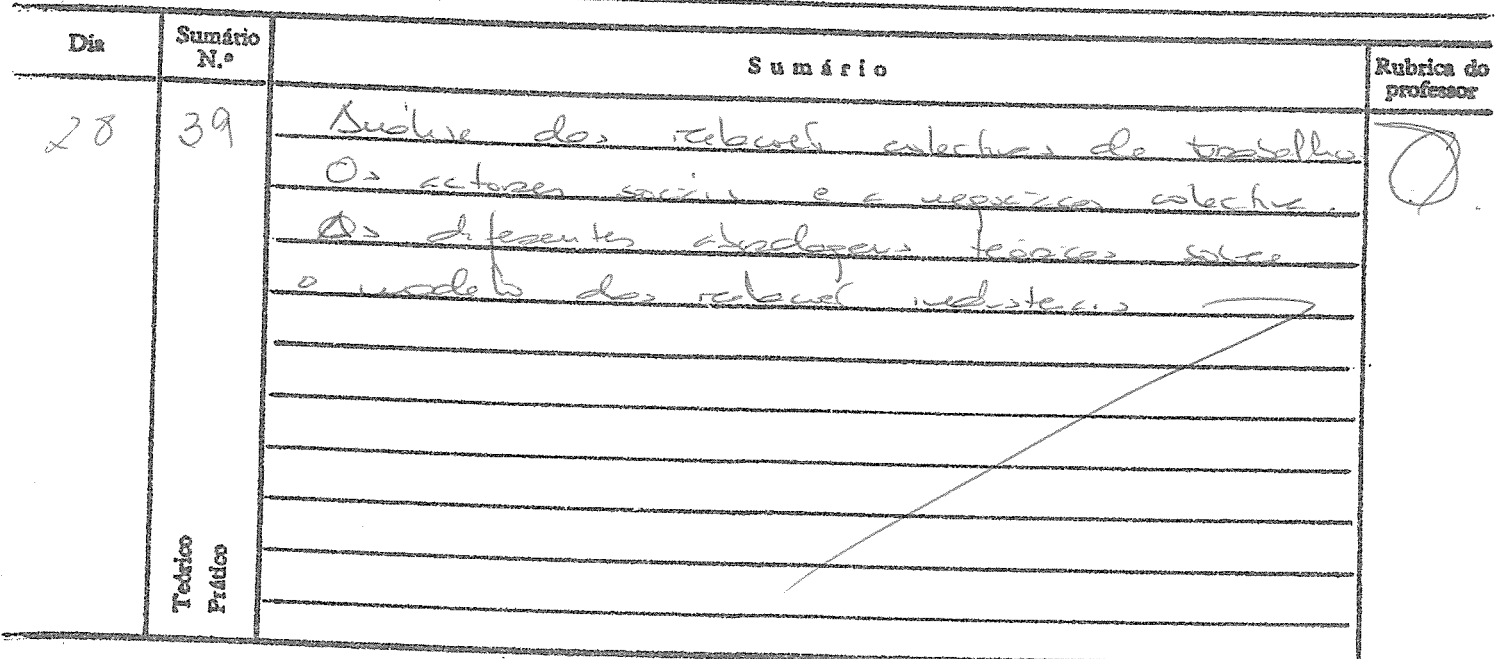 Dia
Sumário N.º
Sumário
Rubrica do professor
28
39
Análise das relações colectivas de trabalho
Os actores sociais e a negociação colectiva.
As diferentes abordagens teóricas sobre
o modelo das relações industriais
Teórico
Prático